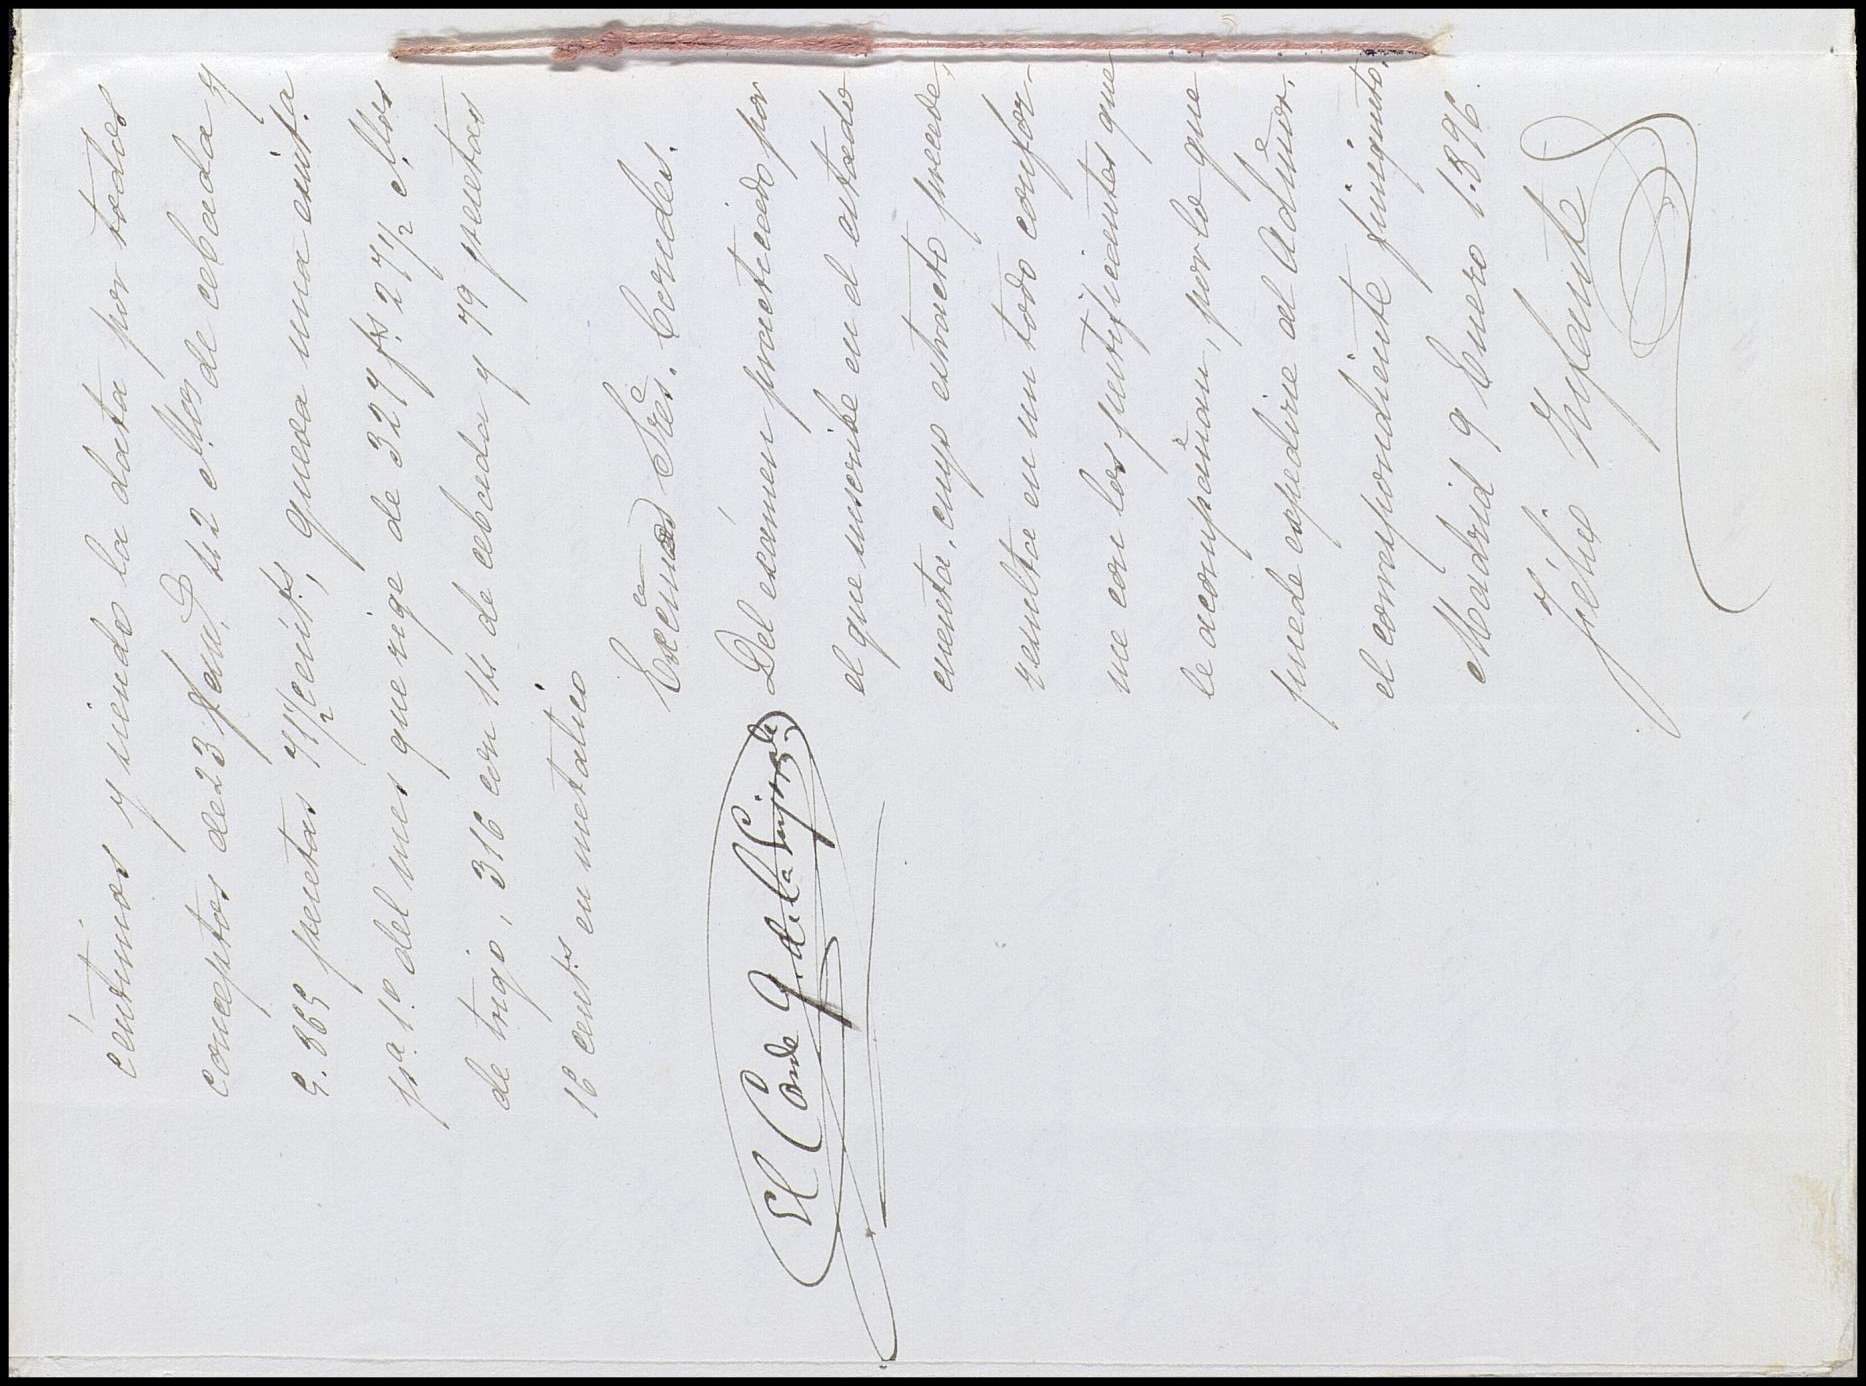 céntimos y siendo la data por todos
conceptos de 23 fan.s 42 Mos de cebada y
5.865 pesetas 71 1/2 cents, queda una exist.a
pa. 1.º del mes que rige de 327 fs 27 1/2 Mos
de trigo, 316 con 14 de cebada y 79 pesetas
16 cents en metalico
Excmos Sres. Condes.
Del exámen practicado por
el que suscribe en el estado
cuenta, cuyo extracto precede,
resulta en un todo confor-
me con los justificantes que
le acompañan, por lo que
puede expedirse al Admor.
el correspondiente finiquito.
Madrid 9 Enero 1.896.
Julio Ynfante
El Conde G. de la